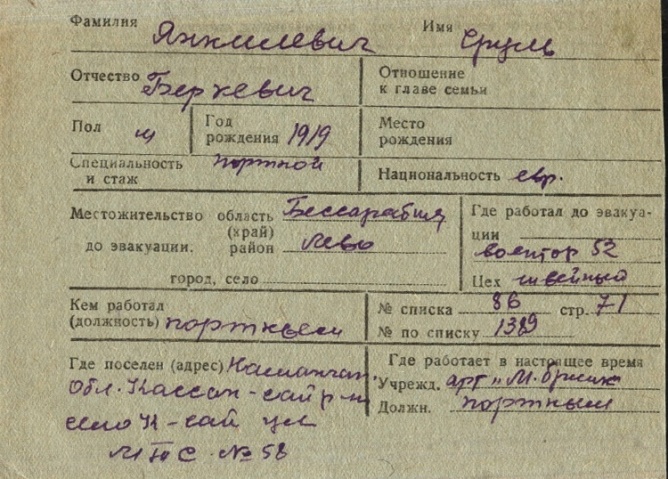 Фамилия Янкилевич Имя Сруль
Отчество Беркевич Отношение к главе семьи
Пол м Год рождения 1919 Место рождения
Специальность и стаж портной Национальность евр.
Местожительство область Бессарабия
(край)
до эвакуации. район Лево
город, село
Где работал до эвакуа-
ции
военторг 52
Цех швейный
Кем работал
(должность) портным
№ списка 86 стр. 71
№ по списку 1389
Где поселен (адрес) Наманган
Обл. Кассан-сай р-н
село К-сай ул
МТС №58
Где работает в настоящее время
Учрежд. арт „М.
Должн. портным